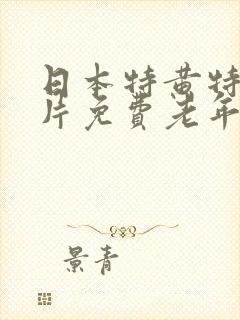 日本特黄特
片免费老年
景青